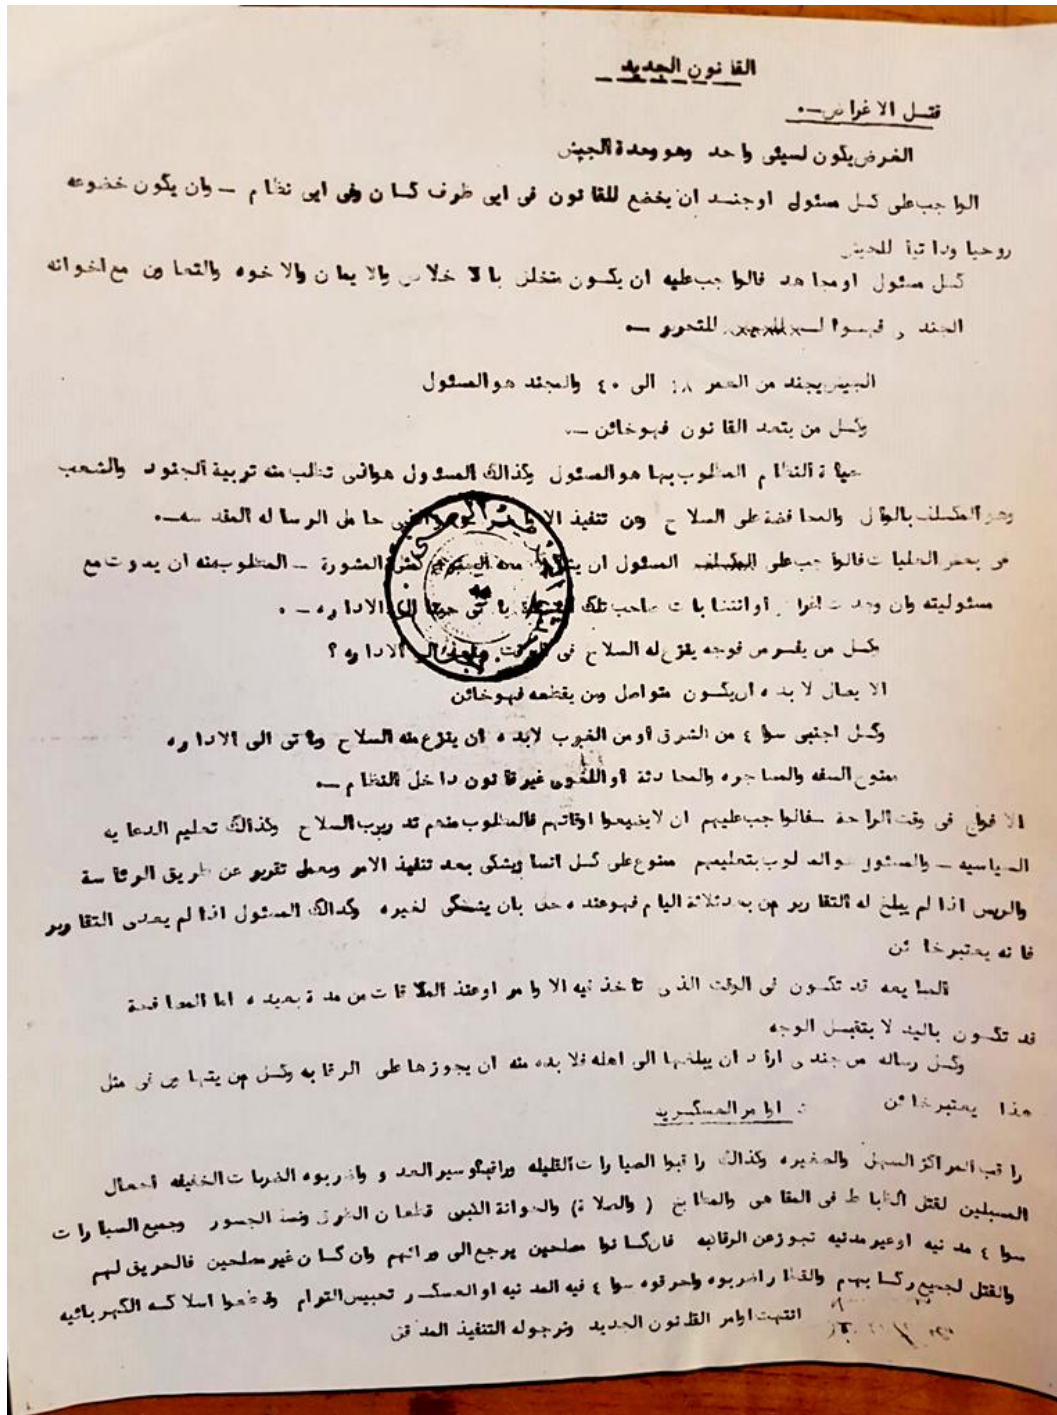 القانون الجديد
قتل الاغراض —.
الغرض يكون لسيئى واحد وهو وحدة الجيش
الواجب على كل مسئول اوجند ان يخضع للقانون فى ايى ظرف كان وفى ايى نظام — وان يكون خضوعه
روحيا وداتيا للجيش
كل مسئول اومجاهد فالواجب عليه ان يكون متخلق بالاخلاص والايمان والاخوه والتعاون مع اخوانه
الجند فهوا للتحرير —.
الجيش يجند من العمر ١٨ الى ٤٠ والمجند هو المسئول
وكل من يتعد القانون فهوخائن —.
حياة النظام المطلوب بها هو المسئول وكذالك المسؤول هوانى تطلب منه تربية الجنود والشعب
وهو المكلف بالمال والمحافضة على السلاح ومن تنفيذ حامل الرساله المقدسه —.
من بعض العمليات فالواجب على المسئول ان المشورة — المطلوب منه ان يموت مع
مسئوليته وان وجدت اغراض اوانتنابات صاحب تلك ياتى الى الاداره — .
وكل من يفر من فوجه ينزع له السلاح فى الوقت الاداره ؟
الايصال لابده ان يكون متواصل ومن يقطعه فهوخائن
وكل اجنبى سواء من الشرق اومن الغرب لابده ان ينزع منه السلاح وياتى الى الاداره
ممنوع السفه والمساجره والمحادثة اواللغوى غير قانون داخل النظام —.
الافواج فى وقت الراحة فالواجب عليهم ان لايضيعوا اوقاتهم فالمطلوب منهم تدريب السلاح وكذالك تعليم الدعايه
السياسيه — والمسئول هوالمطلوب بتعليمهم ممنوع على كل انسان يشكى بعد تنفيذ الامر ويعطى تقرير عن طريق الرئاسة
والريس اذا لم يبلغ له التقارير من بعد ثلاثة اليام فهوعنده حق بان يشكى لغيره وكدالك المسئول اذا لم يعطى التقارير
فانه يعتبر خائن
المبايعه قد تكون فى الوقت الذى تاخذ فيه الاوامر اوعند الملاقات من مدة بعيده اما المصافحة
قد تكون باليد لا بتقبيل الوجه
وكل رساله من جندى اراد ان يبلغها الى اهله فلا بده منه ان يجوزها على الرقابه وكل من يتهاون فى مثل
هذا يعتبر خائن
اوامر العسكريه
راقب المراكز السهل والصغيره وكذالك راقبوا الصيارات القليله وراقبوا سير العدو واضربوه الضربات الخفيفه اعمال
المسبلين لقتل الضباط فى المقاهى والمطابخ ( والصلاة) والحوانة اللتى قطعان الطرق ونسف الجسور وجميع السيارات
سواء مدنيه اوغير مدنيه تجوزعن الرقابه فان كانوا مصلحين يرجع الى ورائهم وان كان غير مصلحين فالحريق لهم
والقتل لجميع ركابهم والقطار اضربوه واحرقوه سواء فيه المدنيه اوالعسكر تحبيس التوام وقطعوا اسلاكه الكهربائيه
انتهت اوامر القانون الجديد ونرجوله التنفيذ المدقق